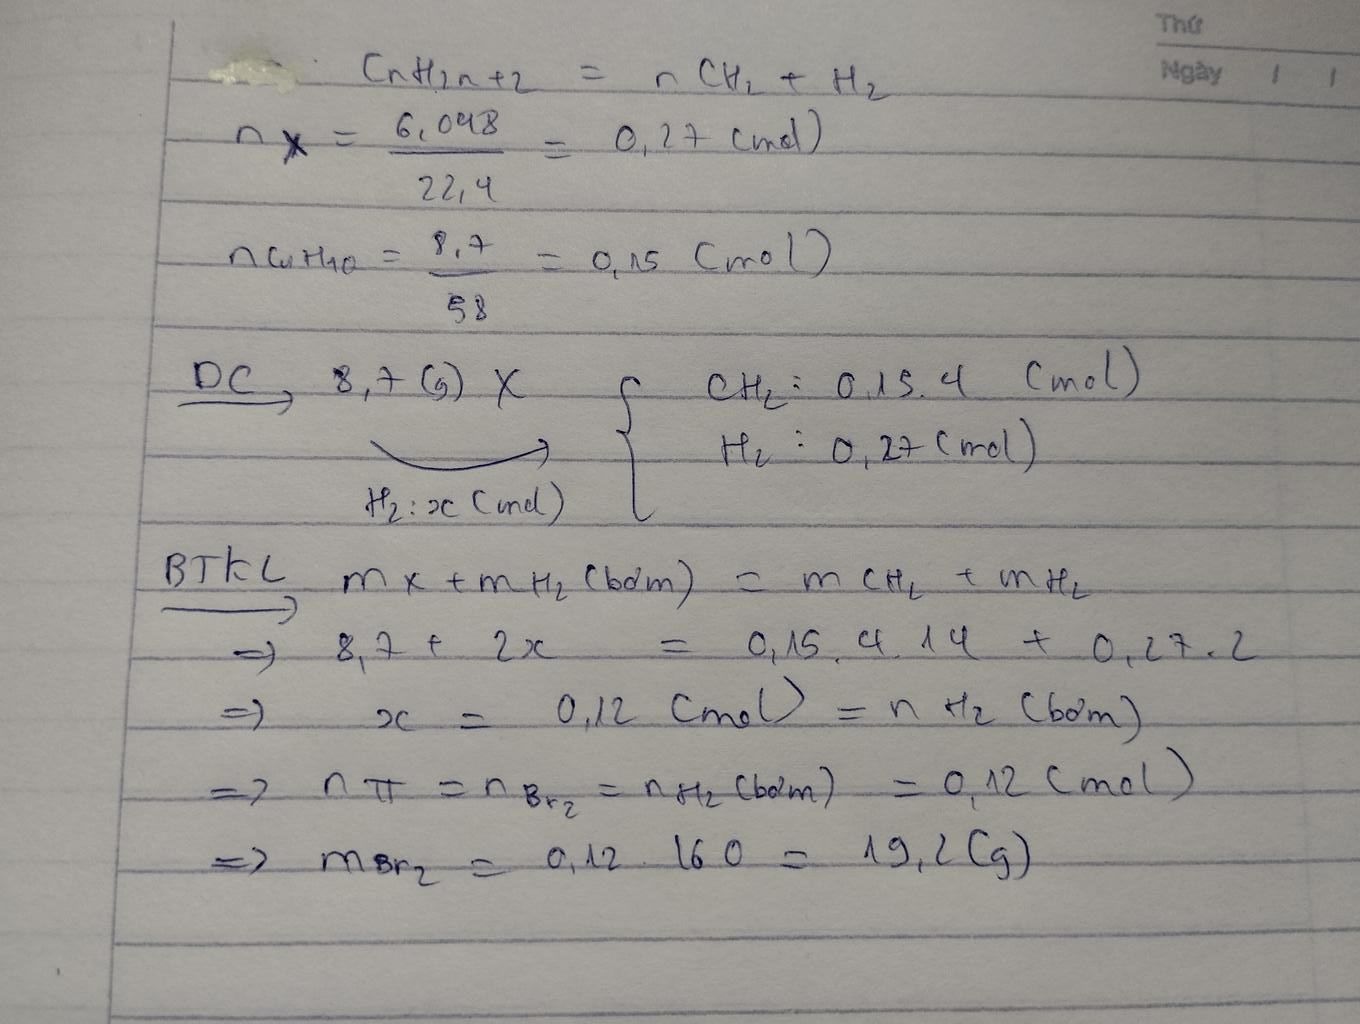 Thứ
Ngày / /
CnH2n+2 = n CH2 + H2
nX = 6,048 / 22,4 = 0,27 (mol)
nC4H10 = 8,7 / 58 = 0,15 (mol)
DC → 8,7 (g) X { CH2 : 0,15.4 (mol)
H2 : 0,27 (mol)
H2 : x (mol)
BTKL → mX + mH2 (bơm) = mCH2 + mH2
=> 8,7 + 2x = 0,15.4.14 + 0,27.2
=> x = 0,12 (mol) = nH2 (bơm)
=> nπ = nBr2 = nH2 (bơm) = 0,12 (mol)
=> mBr2 = 0,12 . 160 = 19,2 (g)